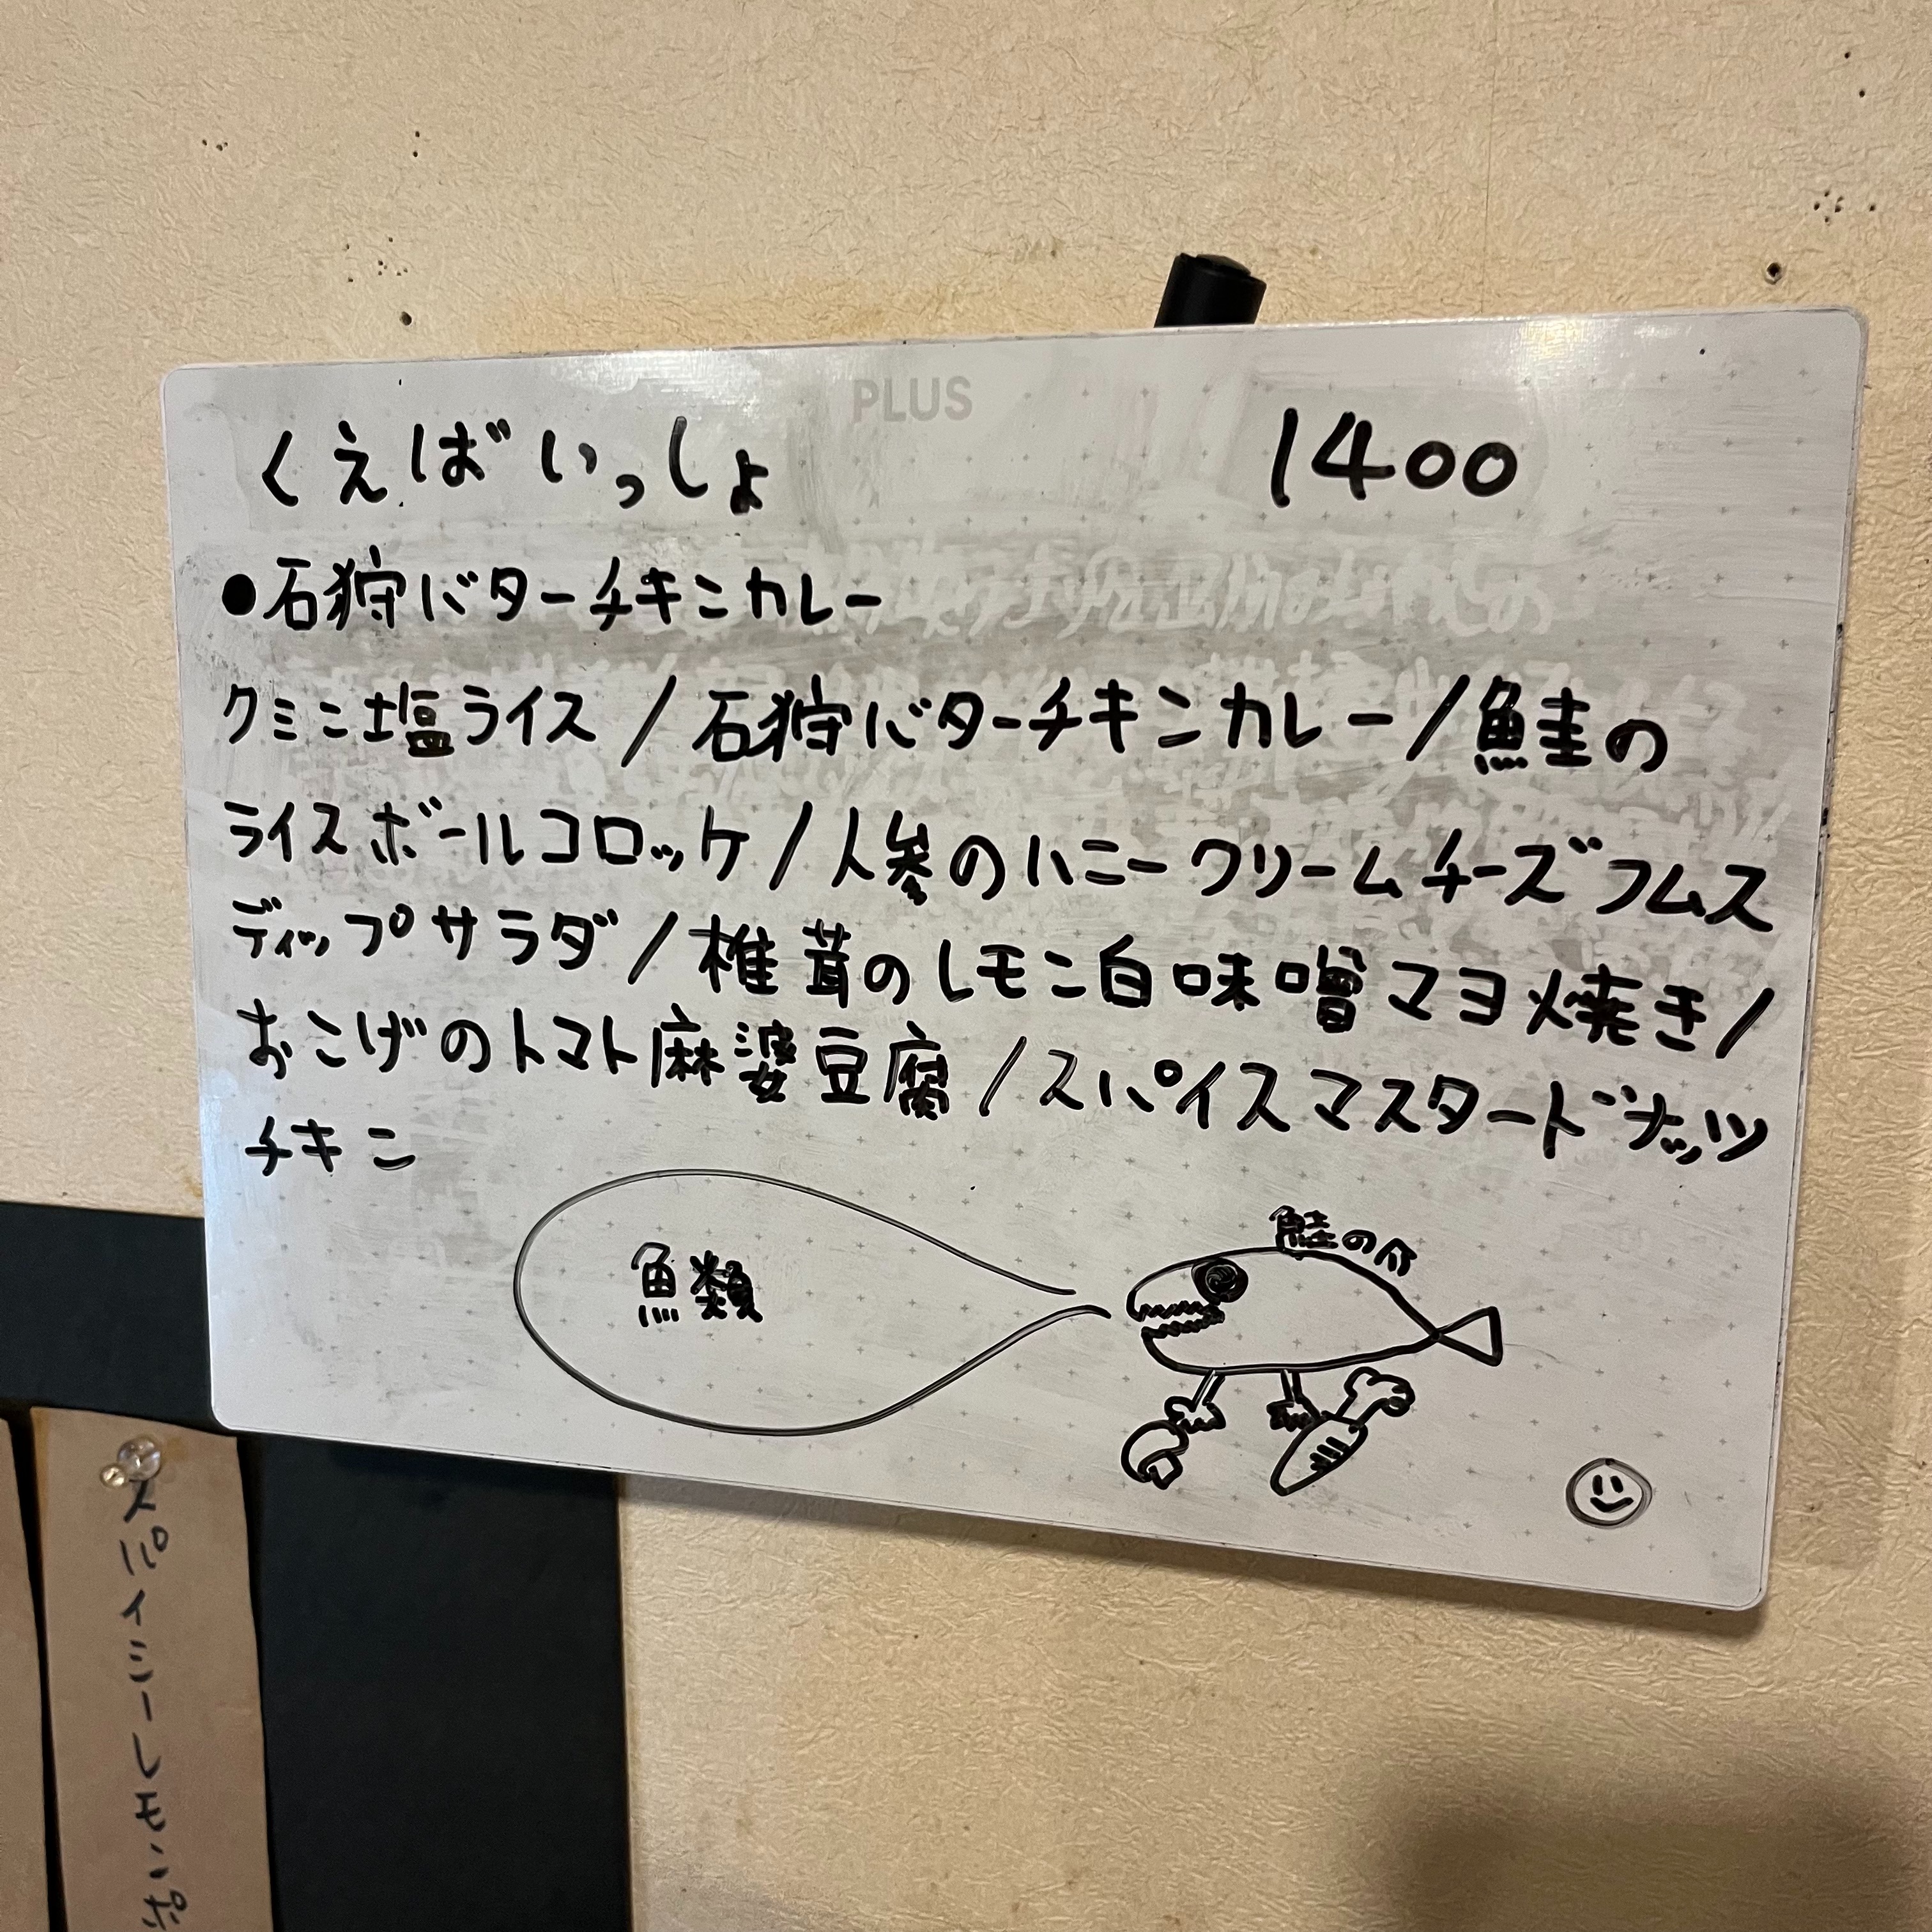 PLUS
くえばいっしょ 1400
●石狩バターチキンカレー
クミン塩ライス/石狩バターチキンカレー/鮭の
ライスボールコロッケ/人参のハニークリームチーズフムス
ディップサラダ/椎茸のレモン白味噌マヨ焼き/
おこげのトマト麻婆豆腐/スパイスマスタードナッツ
チキン
鮭の介
魚類
スパイシーレモンポ